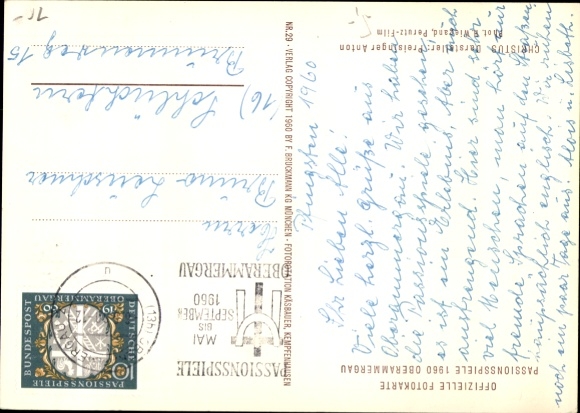 OFFIZIELLE FOTOKARTE
PASSIONSSPIELE 1960 OBERAMMERGAU
CHRISTUS Darsteller: Preisinger Anton
Phot. Wieland, Perutz-Film
Pfingsten 1960
Ihr Lieben Alle!
Viele herzl. Grüße aus
Oberammergau. Wir haben
die Passionsspiele gesehen,
es ist ein Erlebnis, aber auch
anstrengend. Hier sind sehr
viel Menschen, man hört nur
fremde Sprachen auf den Straßen
hauptsächlich englisch. Wir ruhen
noch ein paar Tage aus. Alois u. Lisbeth.
NR. 29 - VERLAG COPYRIGHT 1960 BY F. BRUCKMANN KG MÜNCHEN - FOTOREDAKTION KÄSBAUER, KEMPFENHAUSEN
PASSIONSSPIELE
MAI
BIS
SEPTEMBER
1960
OBERAMMERGAU
DEUTSCHE
BUNDESPOST
PASSIONSSPIELE
OBERAMMERGAU
10
Herrn
Bruno Leuschner
(16) Schlüchtern
Brunnenweg 15